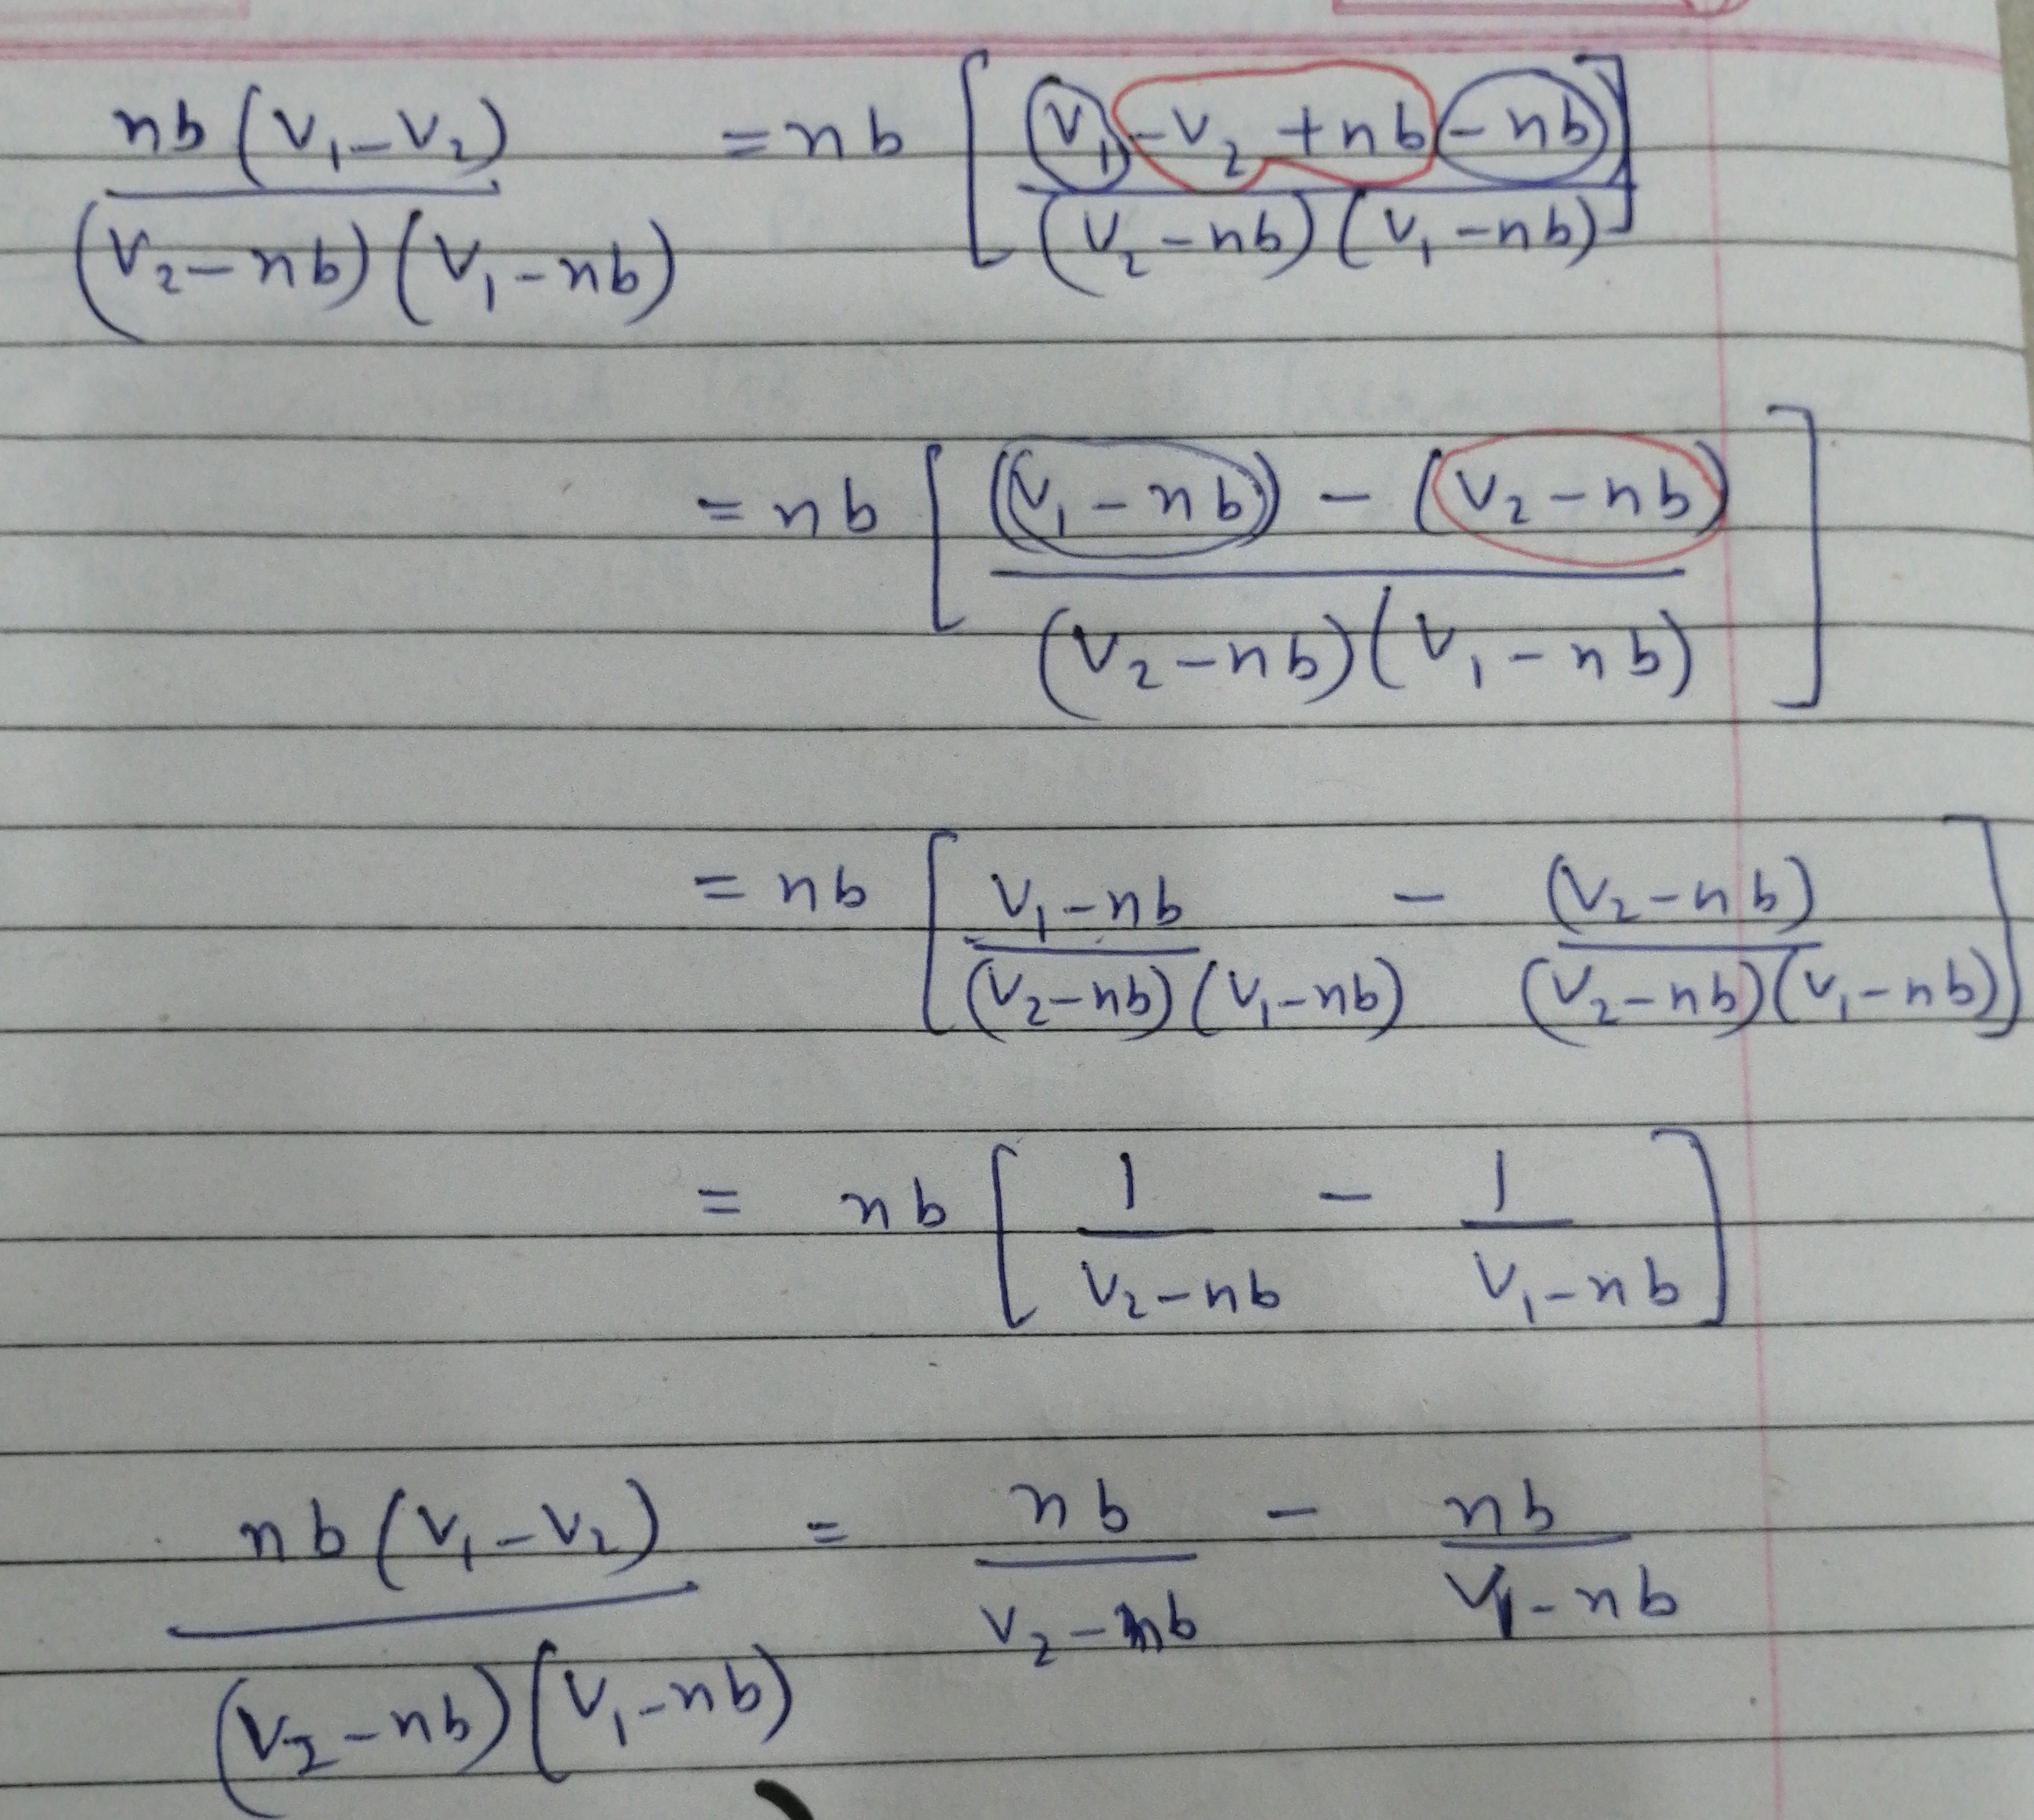 nb(V₁-V₂)/(V₂-nb)(V₁-nb) = nb [V₁-V₂+nb-nb/(V₂-nb)(V₁-nb)]
= nb [(V₁-nb) - (V₂-nb)/(V₂-nb)(V₁-nb)]
= nb [V₁-nb/(V₂-nb)(V₁-nb) - (V₂-nb)/(V₂-nb)(V₁-nb)]
= nb [1/V₂-nb - 1/V₁-nb]
nb(V₁-V₂)/(V₂-nb)(V₁-nb) = nb/V₂-nb - nb/V₁-nb